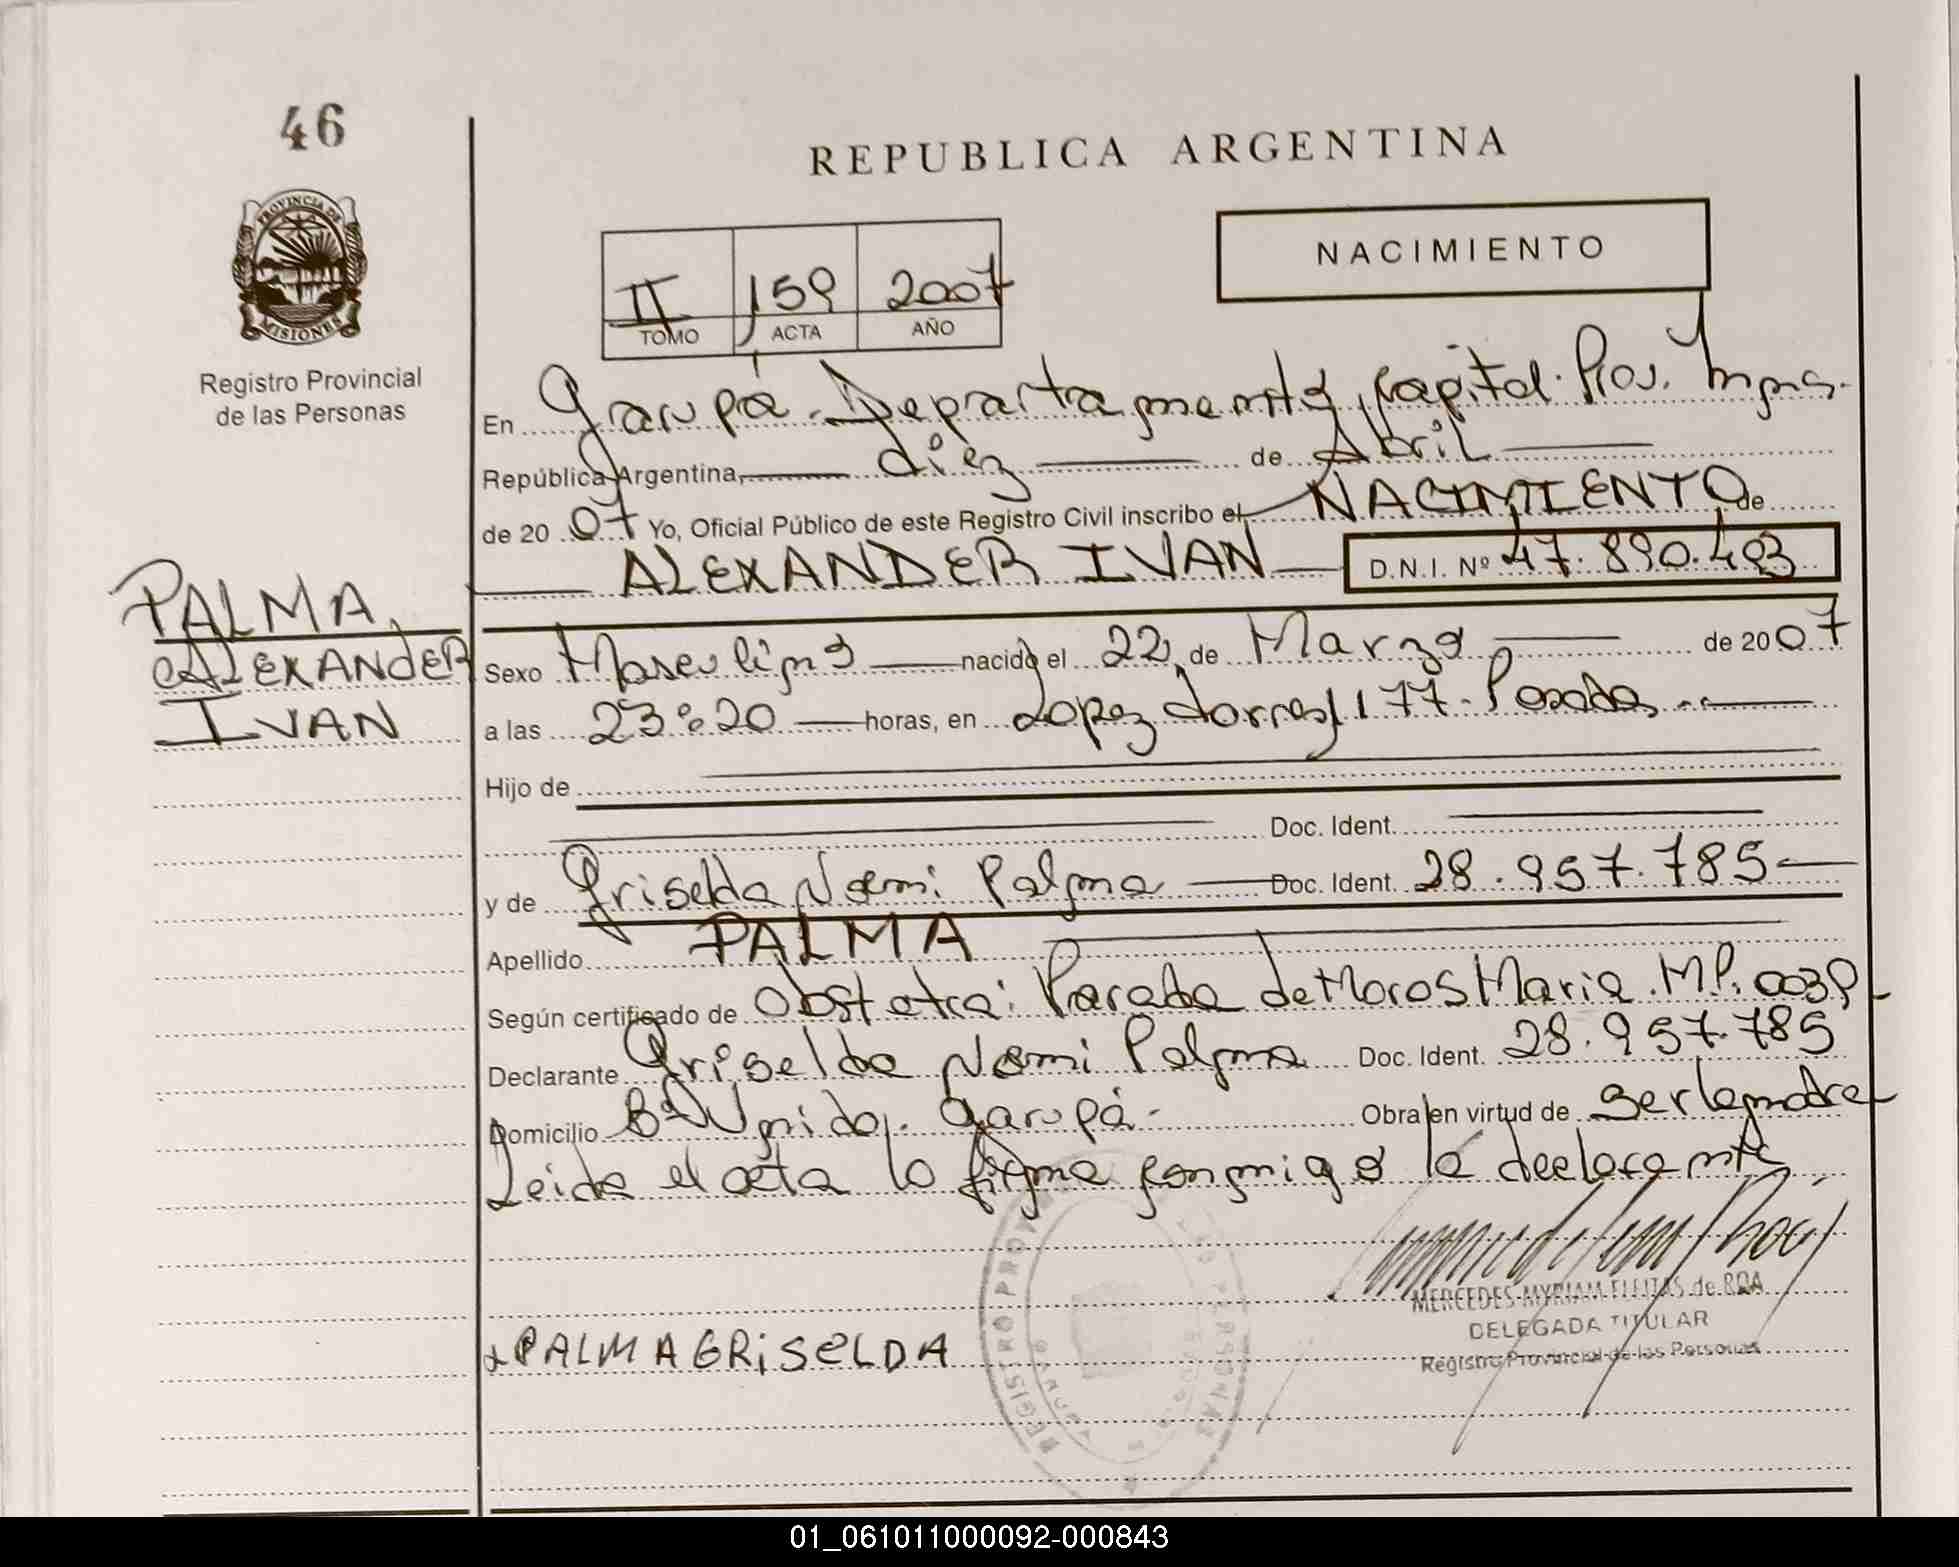 46
REPUBLICA ARGENTINA
PROVINCIA DE
MISIONES
NACIMIENTO
II 159 2007
TOMO ACTA AÑO
Registro Provincial
de las Personas
En Garupá Departamento Capital Prov. Mnes.
República Argentina, diez de Abril
de 20 07 Yo, Oficial Público de este Registro Civil inscribo el NACIMIENTO de
ALEXANDER IVAN D.N.I. Nº 47.890.493
PALMA,
ALEXANDER
IVAN
Sexo Masculino nacido el 22 de Marzo de 20 07
a las 23:20 horas, en Lopez Torres 1177. Posadas
Hijo de
Doc. Ident.
y de Griselda Noemi Palma Doc. Ident. 28.957.785
Apellido PALMA
Según certificado de Obstetra: Parada de Moros Maria. M.P. 0039
Declarante Griselda Noemi Palma Doc. Ident. 28.957.785
Domicilio Bº Unido. Garupá. Obra en virtud de ser la madre
Leida el acta la firma conmigo la declarante
MERCEDES MYRIAM FLEITAS de ROA
DELEGADA TITULAR
Registro Provincial de las Personas
PALMA GRISELDA
REGISTRO PROV PERSONAS
01_061011000092-000843